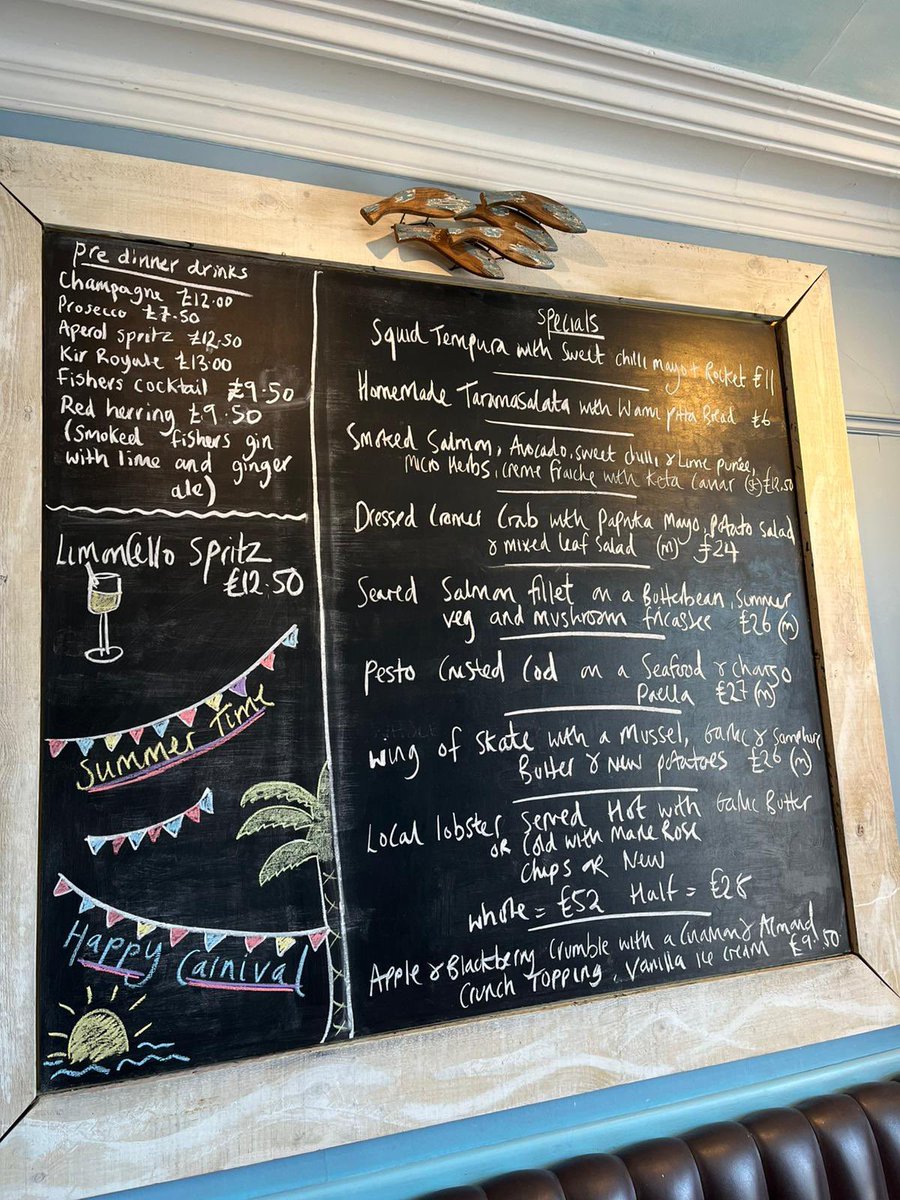 Pre dinner drinks
Champagne £12.00
Prosecco £7.50
Aperol spritz £12.50
Kir Royale £13.00
Fishers cocktail £9.50
Red herring £9.50
(Smoked fishers gin
with lime and ginger
ale)
Limoncello Spritz
£12.50
Summer Time
Happy Carnival
Specials
Squid Tempura with Sweet chilli mayo + Rocket £11
Homemade Taramasalata with Warm Pitta Bread £6
Smoked Salmon, Avocado, sweet chilli & Lime purée,
micro Herbs, creme fraiche with Keta Caviar (st) £12.50
Dressed Cromer Crab with Paprika Mayo, potato salad
& mixed leaf Salad (m) £24
Seared Salmon fillet on a Butterbean, Summer
veg and mushroom fricassee £26 (m)
Pesto Crusted Cod on a Seafood & Chorizo
Paella £27 (m)
Wing of Skate with a Mussel, Garlic & Samphire
Butter & New potatoes £26 (m)
Local lobster Served Hot with Garlic Butter
or Cold with Marie Rose
Chips or New
Whole = £52 Half = £28
Apple & Blackberry Crumble with a Cinamon & Almond
Crunch Topping, Vanilla ice cream £9.50